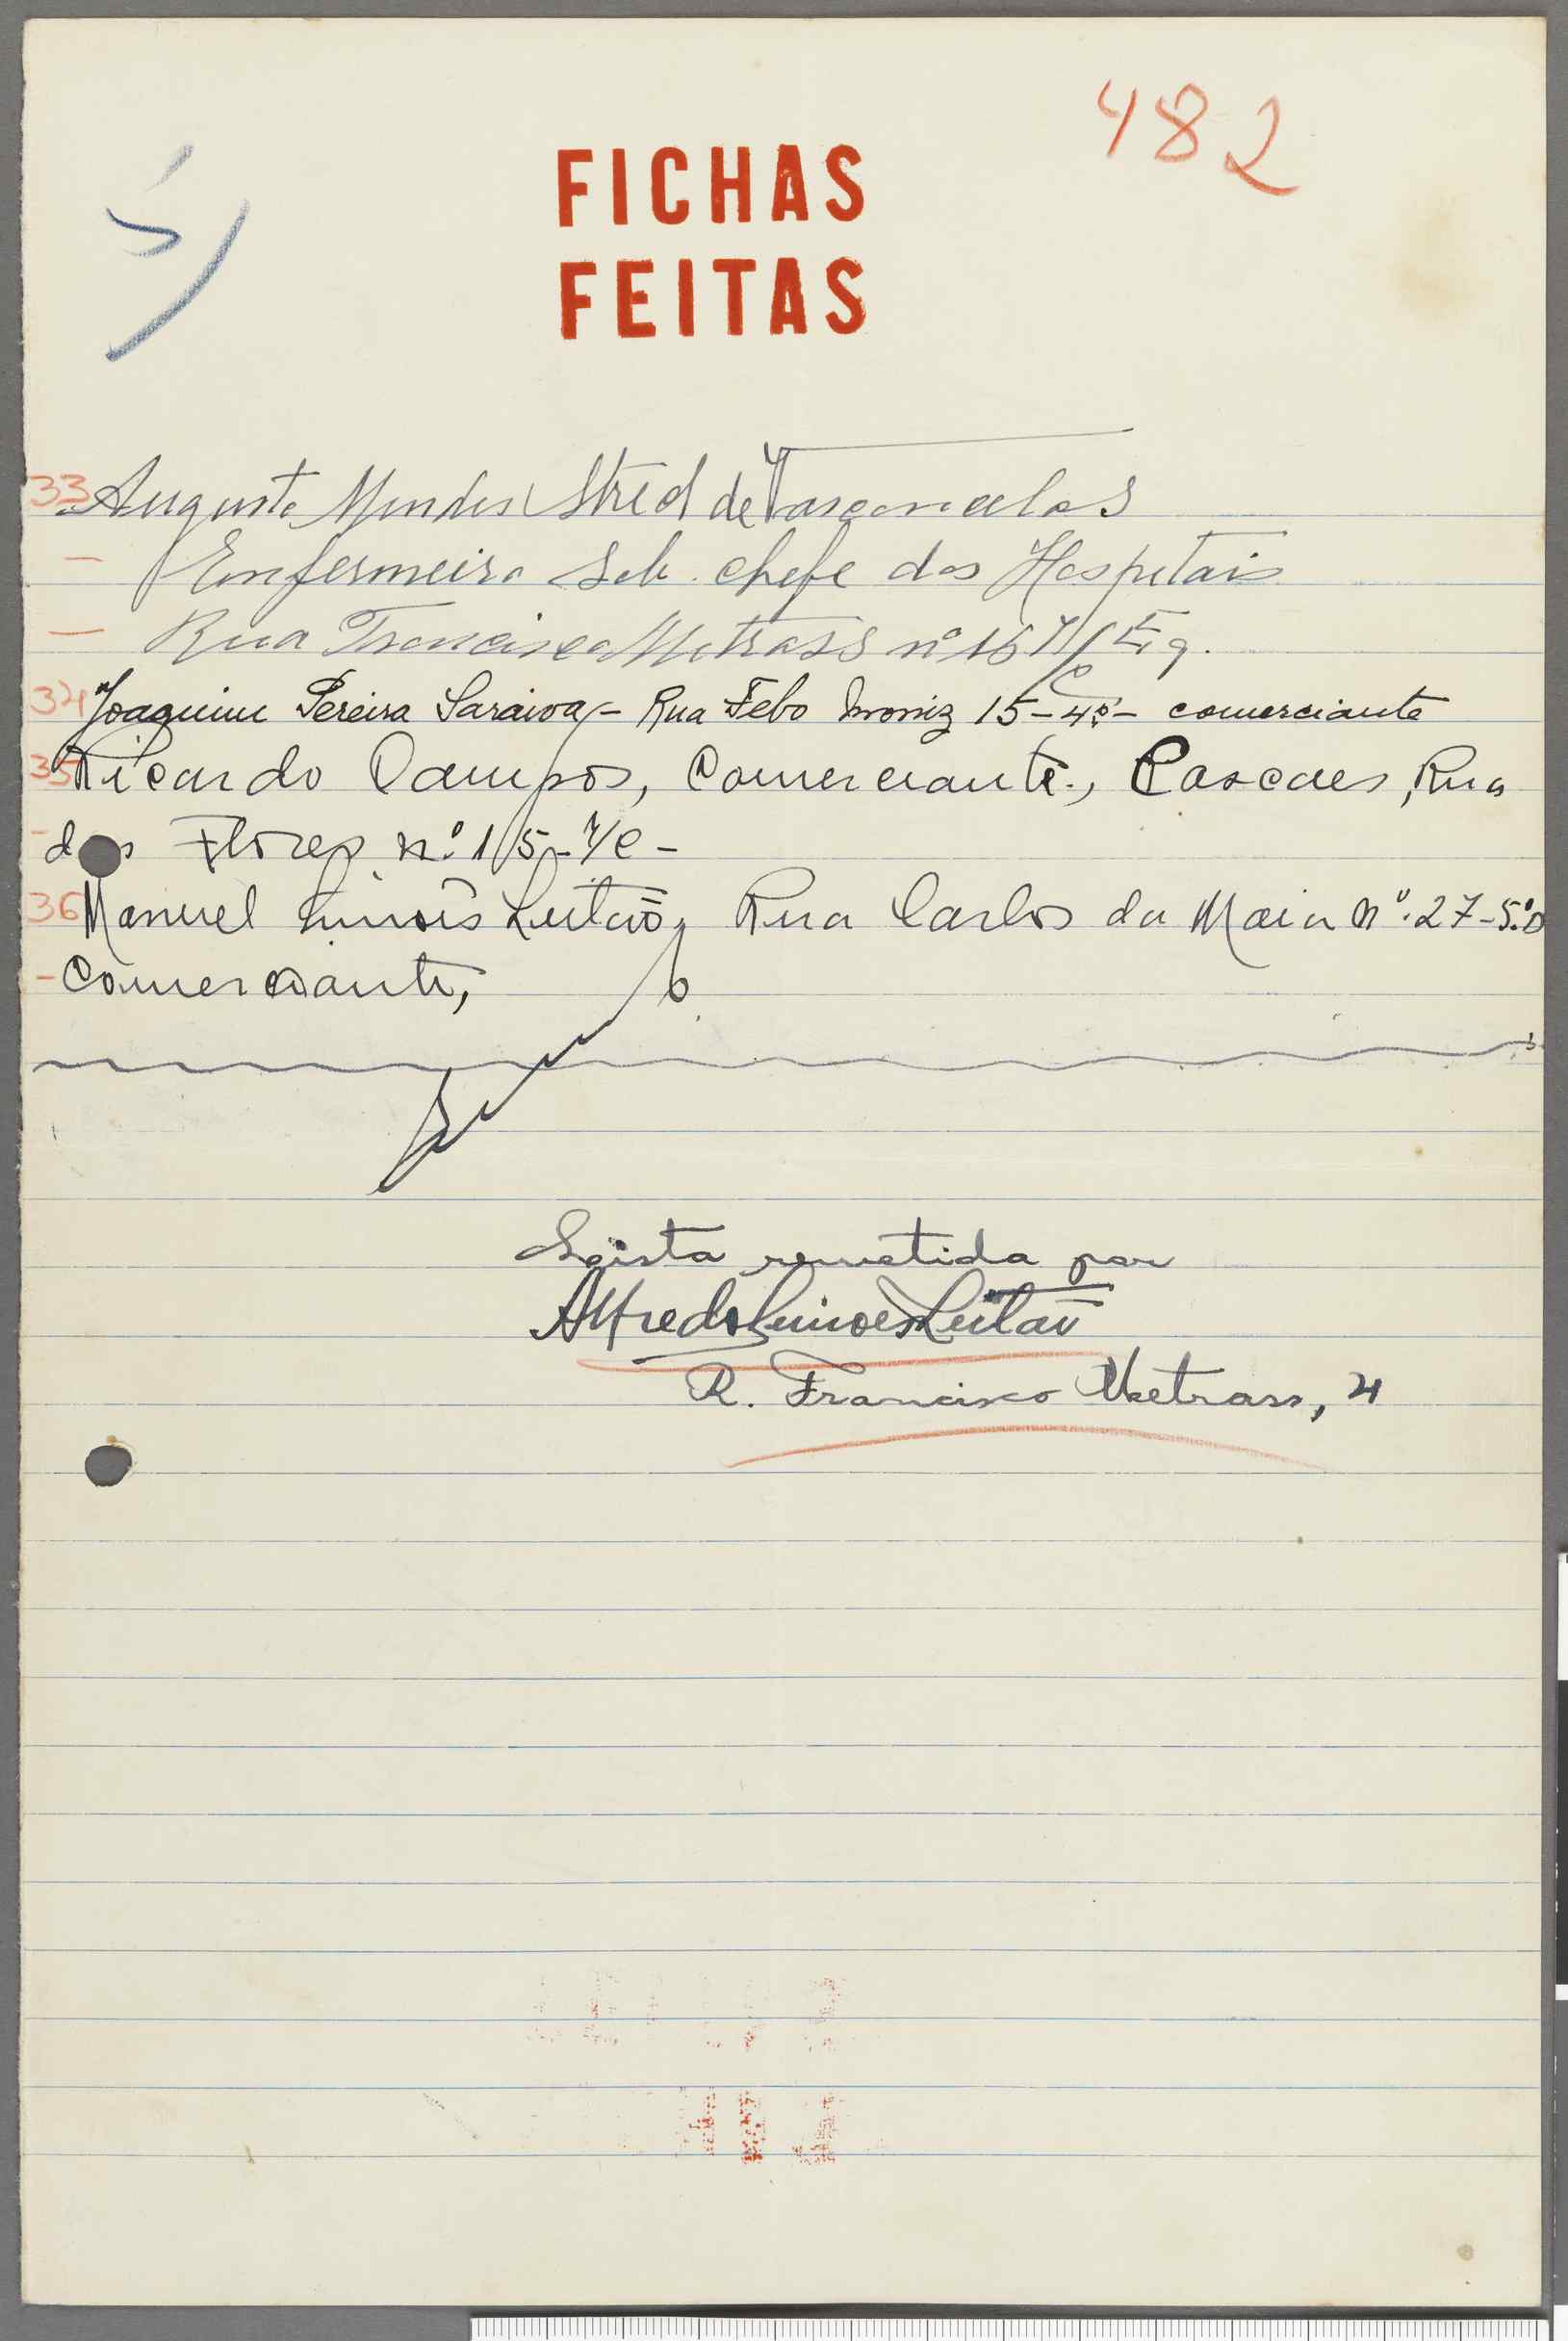 482
FICHAS
FEITAS
33 Augusto Mendes Stred de Vasconcelos
- Enfermeiro Sub. chefe dos Hospitais
- Rua Francisco Metrass nº 16 r/c Esq.
34 Joaquim Pereira Saraiva - Rua Febo Moniz 15-4º - comerciante
35 Ricardo Campos, Comerciante, Cascaes, Rua
- das Flores nº 15 - r/c -
36 Manuel Simões Leitão, Rua Carlos da Maia nº 27-5º D
- Comerciante,
Lista remetida por
Alfredo Simões Leitão
R. Francisco Metrass, 4